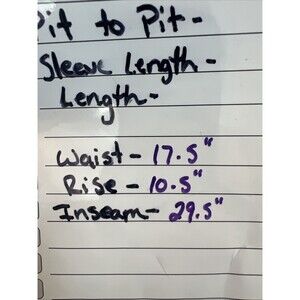 Pit to Pit -
Sleeve Length -
Length -
Waist - 17.5"
Rise - 10.5"
Inseam - 29.5"